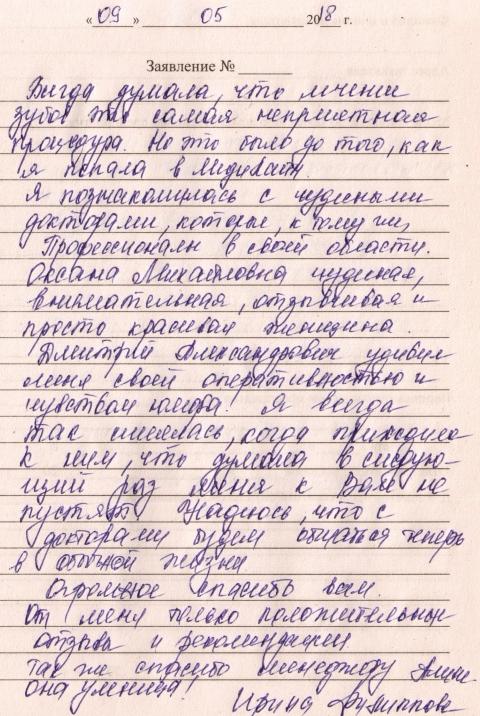 « 09 » 05 2018 г.
Заявление №
Всегда думала, что лечение
зубов это самая неприятная
процедура. Но это было до того, как
я попала в Медикейт.
Я познакомилась с чудесными
докторами, которые, к тому же,
Профессионалы в своей области.
Оксана Михайловна чудесная,
внимательная, отзывчивая и
просто красивая женщина.
Дмитрий Александрович удивил
меня своей оперативностью и
чувством юмора. Я всегда
так смеялась, когда приходила
к ним, что думала в следую-
щий раз меня к Вам не
пустят. Надеюсь, что с
докторами будем общаться теперь
в обычной жизни
Огромное спасибо вам.
От меня только положительные
отзывы и рекомендации
так же спасибо менеджеру
она умница.
Ирина Филиппова